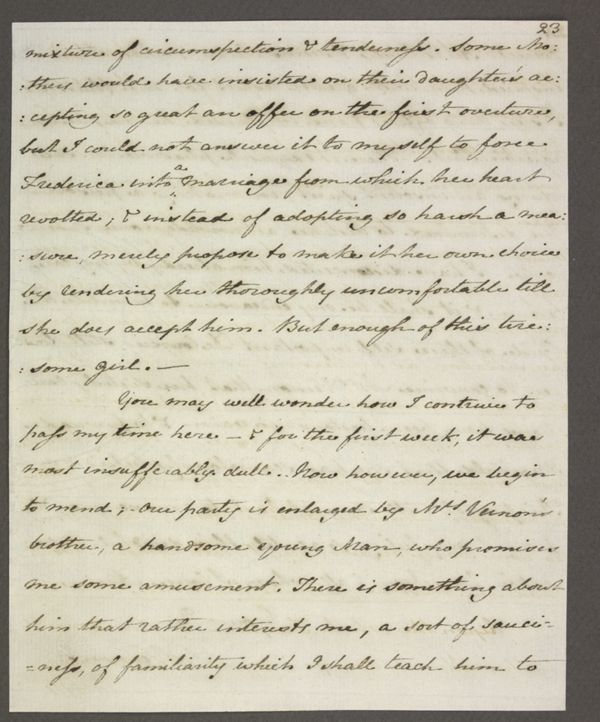 23
mixture of circumspection & tenderness. Some Mo:
:thers would have insisted on their daughter's ac:
:cepting so great an offer on the first overture,
but I could not answer it to myself to force
Frederica into a marriage from which her heart
revolted; & instead of adopting so harsh a mea:
:sure, merely propose to make it her own choice
by rendering her thoroughly uncomfortable till
she does accept him. But enough of this tire:
:some girl. —
You may well wonder how I contrive to
pass my time here — & for the first week, it was
most insufferably dull. Now however, we begin
to mend; our party is enlarged by Mrs. Vernon's
brother, a handsome young Man, who promises
me some amusement. There is something about
him that rather interests me, a sort of sauci-
-ness, of familiarity which I shall teach him to